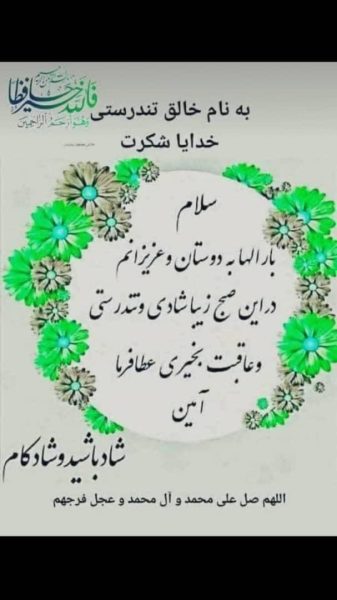 فالله خیر حافظا
وهو ارحم الراحمین
به نام خالق تندرستی
خدایا شکرت
سلام
بار الها به دوستان و عزیزانم
در این صبح زیبا شادی و تندرستی
و عاقبت بخیری عطا فرما
آمین
شاد باشید و شاد کام
اللهم صل علی محمد و آل محمد و عجل فرجهم